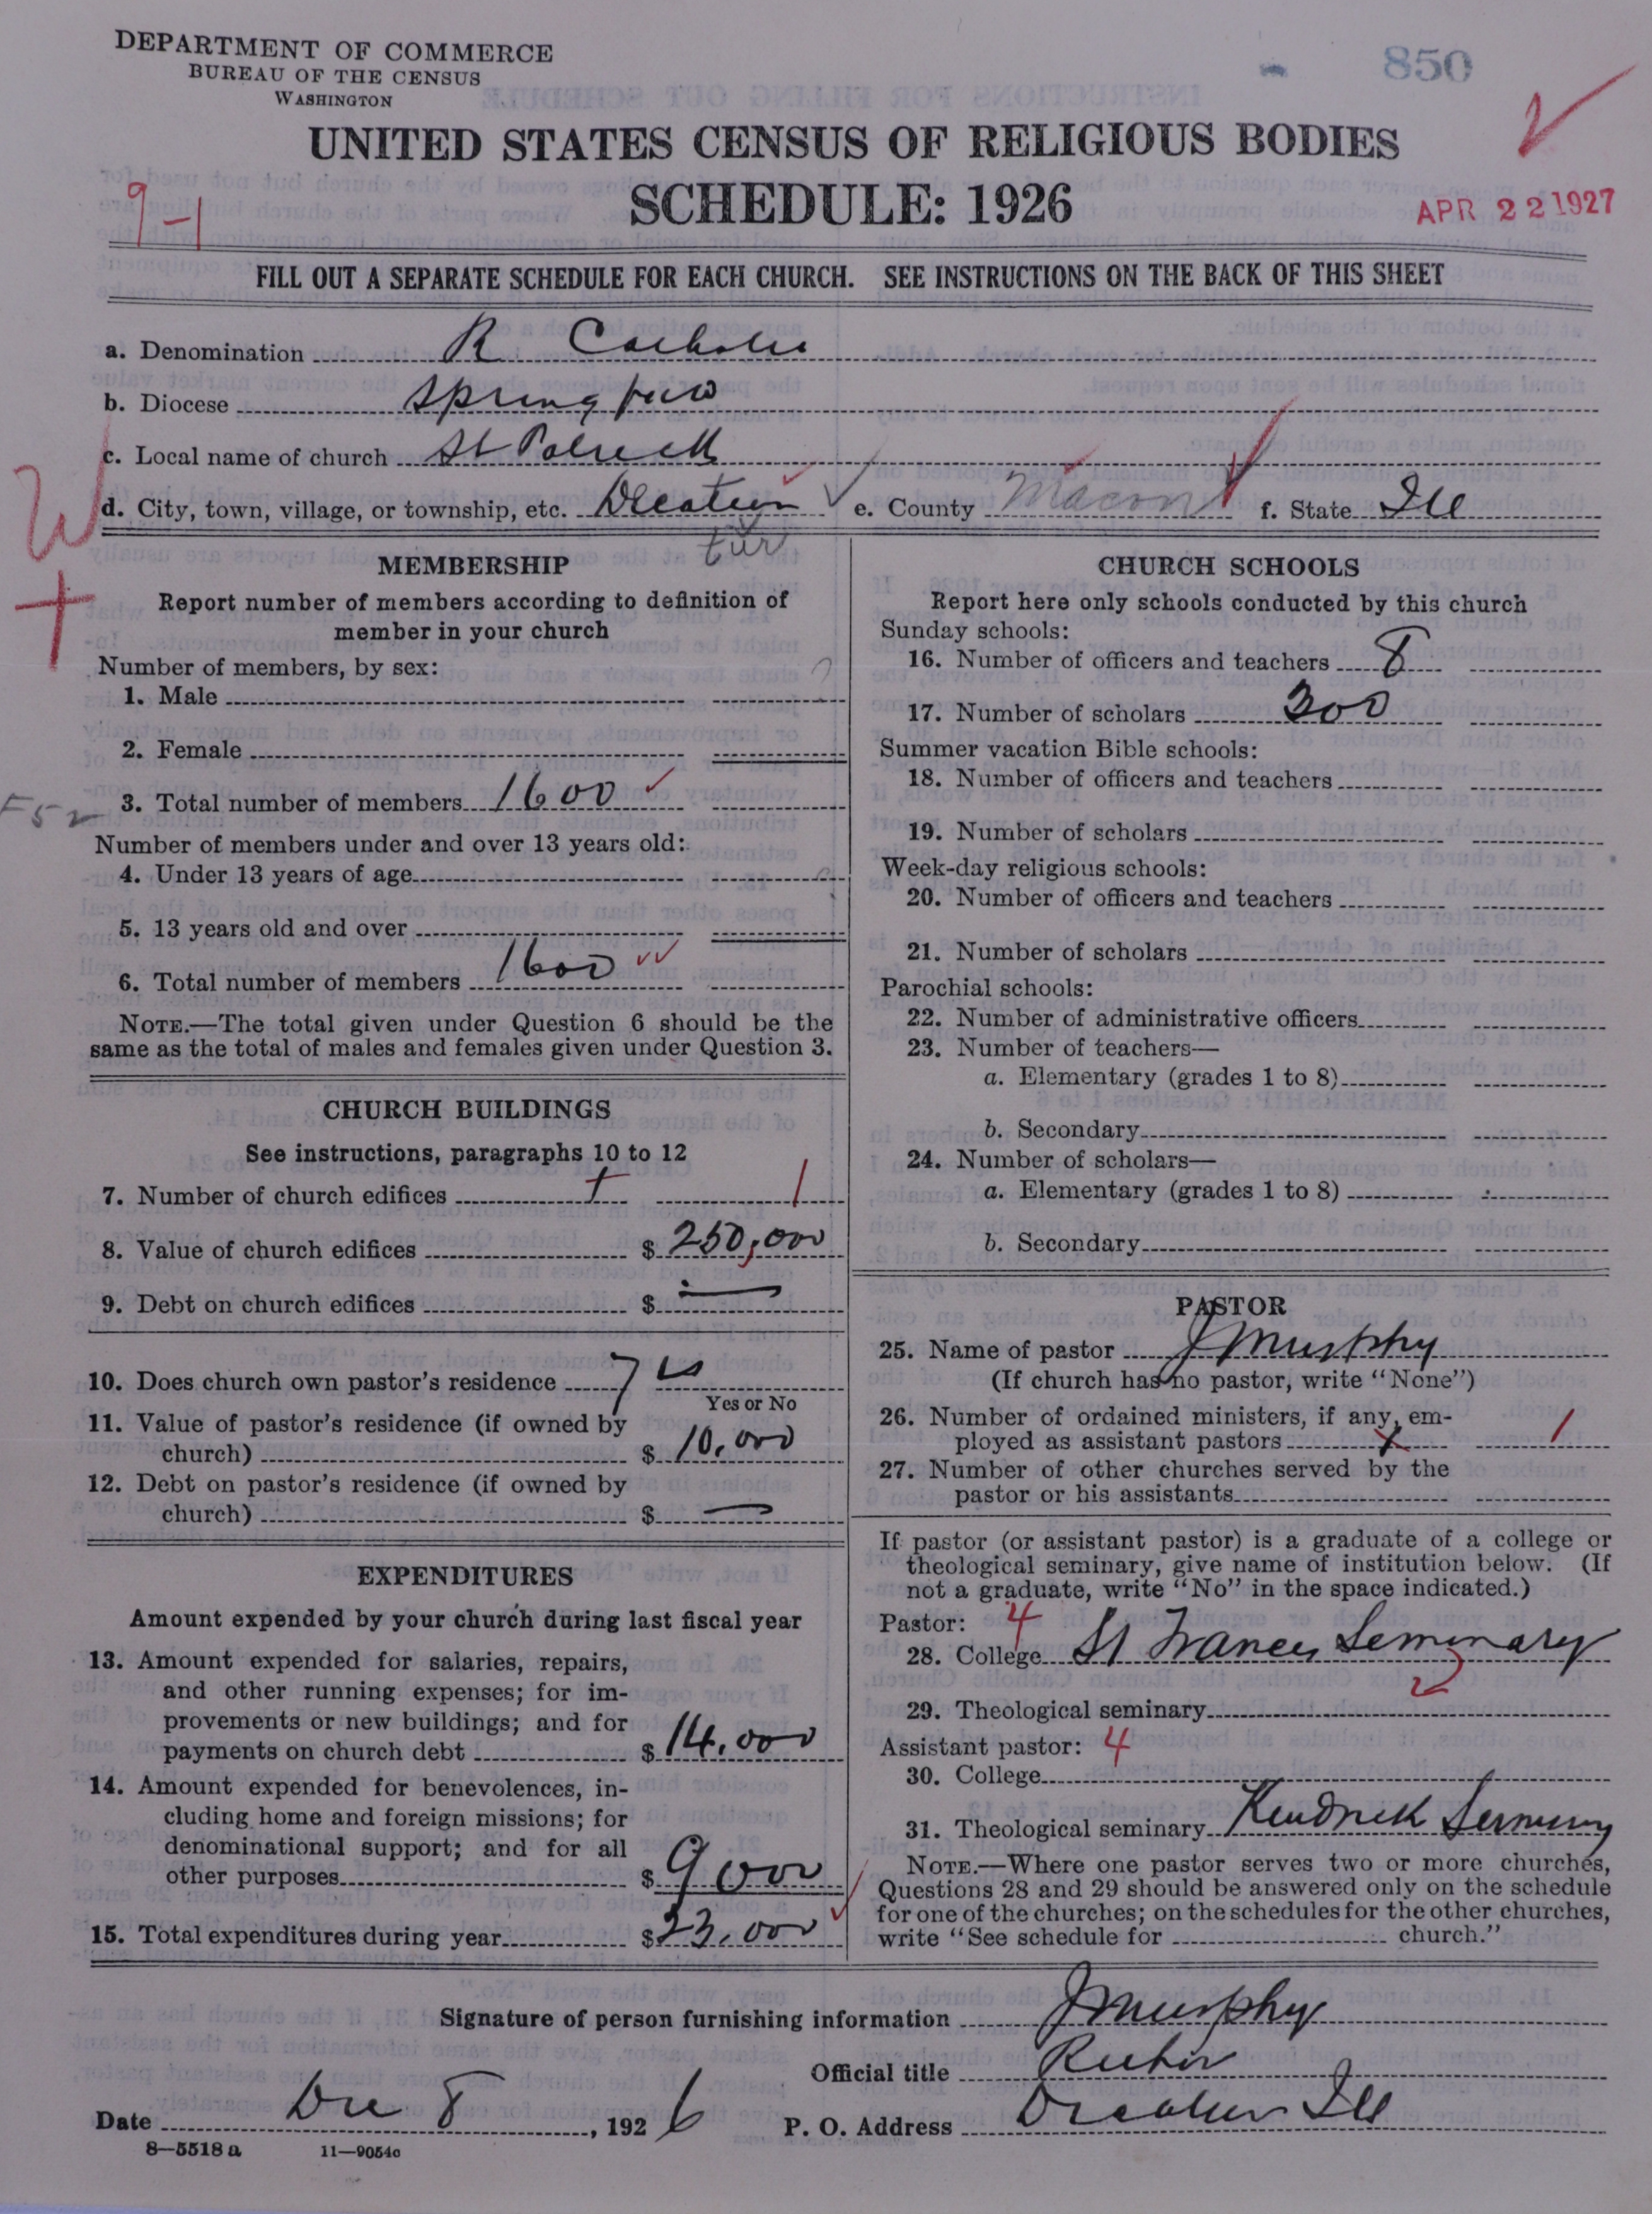 DEPARTMENT OF COMMERCE
BUREAU OF THE CENSUS
WASHINGTON
850
UNITED STATES CENSUS OF RELIGIOUS BODIES
SCHEDULE: 1926
9-1
APR 22 1927
FILL OUT A SEPARATE SCHEDULE FOR EACH CHURCH. SEE INSTRUCTIONS ON THE BACK OF THIS SHEET
a. Denomination R Catholic
b. Diocese Springfield
c. Local name of church St Patrick
d. City, town, village, or township, etc. Decatur e. County Macon f. State Ill
tur
W
MEMBERSHIP
Report number of members according to definition of
member in your church
Number of members, by sex:
1. Male
2. Female
3. Total number of members 1600
Number of members under and over 13 years old:
4. Under 13 years of age
5. 13 years old and over
6. Total number of members 1600
NOTE.—The total given under Question 6 should be the
same as the total of males and females given under Question 3.
CHURCH BUILDINGS
See instructions, paragraphs 10 to 12
7. Number of church edifices 1
8. Value of church edifices $ 250,000
9. Debt on church edifices $ —
10. Does church own pastor's residence Yes
Yes or No
11. Value of pastor's residence (if owned by
church) $ 10,000
12. Debt on pastor's residence (if owned by
church) $ —
EXPENDITURES
Amount expended by your church during last fiscal year
13. Amount expended for salaries, repairs,
and other running expenses; for im-
provements or new buildings; and for
payments on church debt $ 14,000
14. Amount expended for benevolences, in-
cluding home and foreign missions; for
denominational support; and for all
other purposes $ 9000
15. Total expenditures during year $ 23,000
CHURCH SCHOOLS
Report here only schools conducted by this church
Sunday schools:
16. Number of officers and teachers 8
17. Number of scholars 300
Summer vacation Bible schools:
18. Number of officers and teachers
19. Number of scholars
Week-day religious schools:
20. Number of officers and teachers
21. Number of scholars
Parochial schools:
22. Number of administrative officers
23. Number of teachers—
a. Elementary (grades 1 to 8)
b. Secondary
24. Number of scholars—
a. Elementary (grades 1 to 8)
b. Secondary
PASTOR
25. Name of pastor J Murphy
(If church has no pastor, write "None")
26. Number of ordained ministers, if any, em-
ployed as assistant pastors 1
27. Number of other churches served by the
pastor or his assistants
If pastor (or assistant pastor) is a graduate of a college or
theological seminary, give name of institution below. (If
not a graduate, write "No" in the space indicated.)
Pastor: 4
28. College St Francis Seminary
29. Theological seminary
Assistant pastor: 4
30. College
31. Theological seminary Kendrick Seminary
NOTE.—Where one pastor serves two or more churches,
Questions 28 and 29 should be answered only on the schedule
for one of the churches; on the schedules for the other churches,
write "See schedule for church."
Signature of person furnishing information J Murphy
Official title Rector
Date Dec 8, 1926 P. O. Address Decatur Ill
8—5518 a 11—9054c